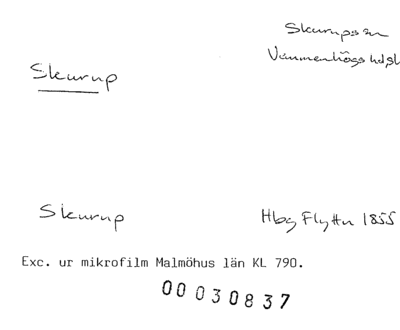 Skurups sn
Vemmenhögs hd
Skurup
Skurup
Hbg Flyttn 1855
Exc. ur mikrofilm Malmöhus län KL 790.
00030837